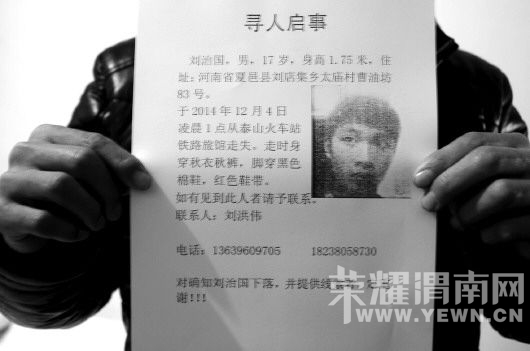 寻人启事
刘治国，男，17 岁，身高 1.75 米，住
址：河南省夏邑县刘店集乡太庙村曹油坊
83 号。
于 2014 年 12 月 4 日
凌晨 1 点从泰山火车站
铁路旅馆走失。走时身
穿秋衣秋裤，脚穿黑色
棉鞋，红色鞋带。
如有见到此人者请予联系。
联系人：刘洪伟
电话：13639609705 18238058730
对确知刘治国下落，并提供线
谢!!!
荣耀渭南网
WWW.YEWN.CN